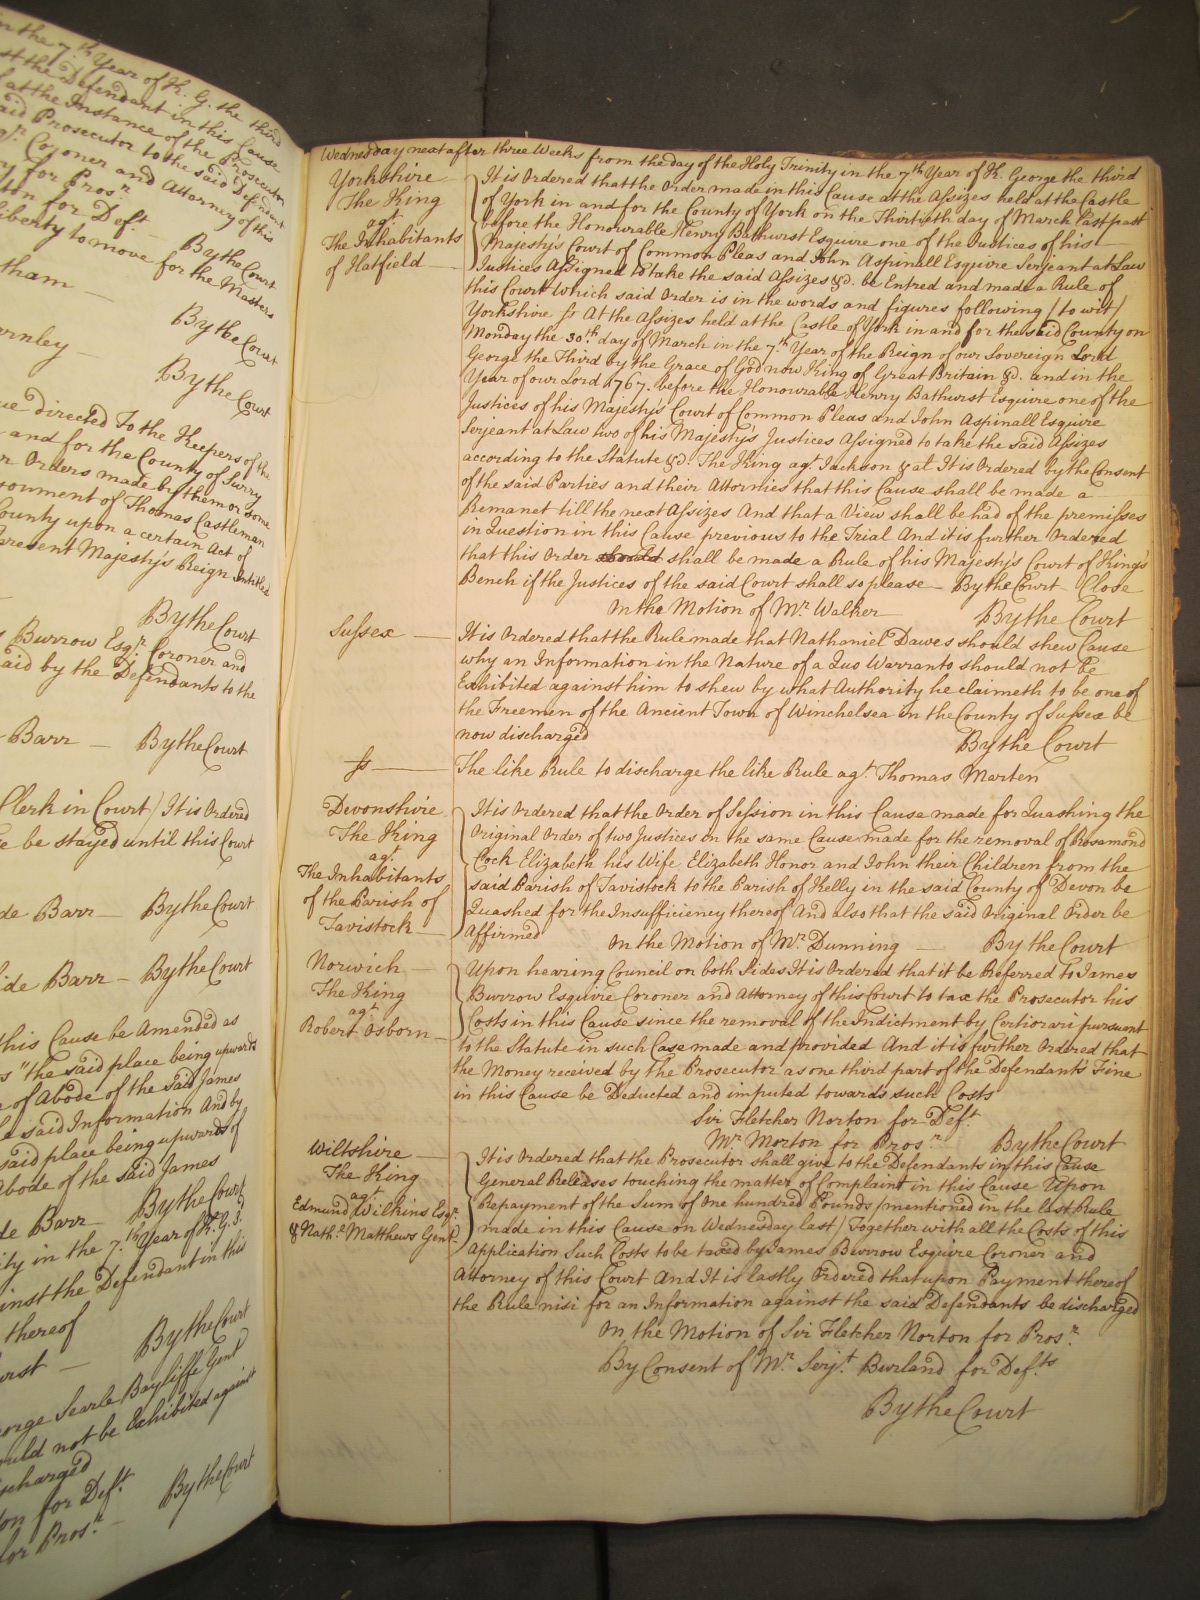 in the 7.th Year of K. G. the third
st the Defendant in this Cause
at the Instance of the Prosecutor
aid Prosecutor to the said Defendant
qr. Coroner and Attorney of this
for Prosr.
ton for Deft. By the Court
liberty to move for the Masters
tham —
By the Court
ornley —
By the Court
ue directed To the Keepers of the
and for the County of Surry
n Orders made by them or some
sonment of Thomas Castleman
County upon a certain Act of
present Majesty's Reign Intitled
By the Court
Burrow Esqr. Coroner and
aid by the Defendants to the
Barr — By the Court
Clerk in Court) It is Ordered
e be stayed until this Court
de Barr — By the Court
ide Barr — By the Court
this Cause be Amended as
s "the said place being upwards
e of Abode of the said James
said Information And by
said place being upwards of
Abode of the said James
de Barr — By the Court
ity in the 7.th Year of K. G. 3.
inst the Defendant in this
thereof
By the Court
urst —
orge Searle Bayliffe Gent
ould not be Exhibited against
scharged
on for Deft.
By the Court
for Prosr. —
Wednesday next after three Weeks from the day of the Holy Trinity in the 7th Year of K. George the third
Yorkshire
The King
agt.
The Inhabitants
of Hatfield
It is Ordered that the Order made in this Cause at the Assizes held at the Castle
of York in and for the County of York on the Thirtieth day of March last past
before the Honourable Henry Bathurst Esquire one of the Justices of his
Majesty's Court of Common Pleas and John Aspinall Esquire Serjeant at Law
Justices Assigned to take the said Assizes &c. be Entred and made a Rule of
this Court Which said Order is in the words and figures following (to wit)
Yorkshire ss At the Assizes held at the Castle of York in and for the said County on
Monday the 30th day of March in the 7.th Year of the Reign of our Sovereign Lord
George the Third by the Grace of God now King of Great Britain &c. and in the
Year of our Lord 1767. before the Honourable Henry Bathurst Esquire one of the
Justices of his Majesty's Court of Common Pleas and John Aspinall Esquire
Serjeant at Law two of his Majesty's Justices Assigned to take the said Assizes
according to the Statute &c. The King agt. Jackson & al It is Ordered by the Consent
of the said Parties and their Attornies that this Cause shall be made a
Remanet till the next Assizes And that a View shall be had of the premisses
in Question in this Cause previous to the Trial And it is further Ordered
that this Order should shall be made a Rule of his Majesty's Court of King's
Bench if the Justices of the said Court shall so please — By the Court Close
On the Motion of Mr. Walker By the Court
Sussex — It is Ordered that the Rule made that Nathaniel Dawes should shew Cause
why an Information in the Nature of a Quo Warranto should not be
Exhibited against him to shew by what Authority he claimeth to be one of
the Freemen of the Ancient Town of Winchelsea in the County of Sussex be
now discharged By the Court
ss — The like Rule to discharge the like Rule agt. Thomas Marten
Devonshire
The King
agt.
The Inhabitants
of the Parish of
Tavistock
It is Ordered that the Order of Session in this Cause made for Quashing the
Original Order of two Justices in the same Cause made for the removal of Rosamond
Cock Elizabeth his Wife Elizabeth Honor and John their Children from the
said Parish of Tavistock to the Parish of Kelly in the said County of Devon be
Quashed for the Insufficiency thereof And also that the said Original Order be
Affirmed On the Motion of Mr. Dunning — By the Court
Norwich
The King
agt.
Robert Osborn
Upon hearing Council on both Sides It is Ordered that it be Referred to James
Burrow Esquire Coroner and Attorney of this Court to tax the Prosecutor his
Costs in this Cause since the removal of the Indictment by Certiorari pursuant
to the Statute in such Case made and provided And it is further Ordered that
the Money received by the Prosecutor as one third part of the Defendants Fine
in this Cause be Deducted and imputed towards such Costs
Sir Fletcher Norton for Deft.
Mr. Morton for Prosr. By the Court
Wiltshire
The King
agt.
Edmund Wilkins Esqr.
& Nathl. Matthews Gent.
It is Ordered that the Prosecutor shall give to the Defendants in this Cause
General Releases touching the matter of Complaint in this Cause Upon
Repayment of the Sum of One hundred Pounds (mentioned in the last Rule
made in this Cause on Wednesday last) Together with all the Costs of this
Application Such Costs to be taxed by James Burrow Esquire Coroner and
Attorney of this Court And It is lastly Ordered that upon Payment thereof
the Rule nisi for an Information against the said Defendants be discharged
On the Motion of Sir Fletcher Norton for Prosr.
By Consent of Mr. Serjt. Burland for Defts.
By the Court